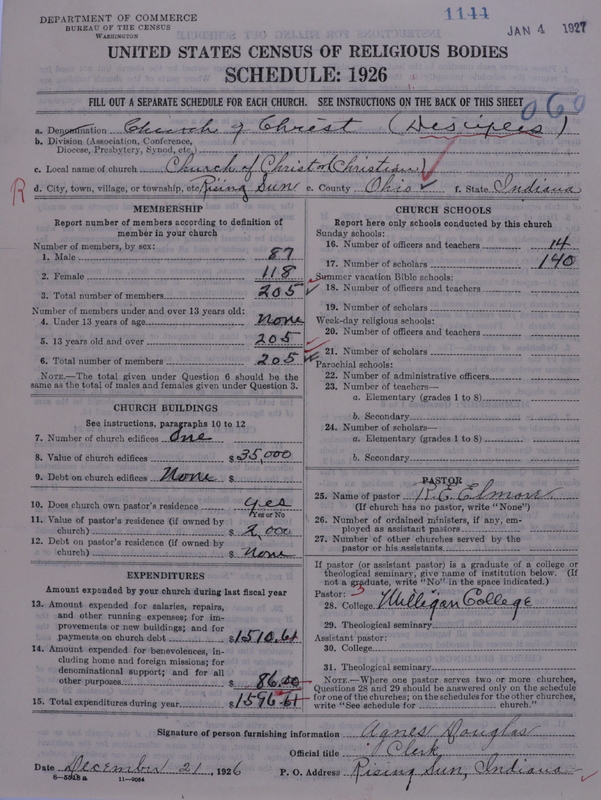 DEPARTMENT OF COMMERCE
BUREAU OF THE CENSUS
WASHINGTON
1144
JAN 4 1927
UNITED STATES CENSUS OF RELIGIOUS BODIES
SCHEDULE: 1926
FILL OUT A SEPARATE SCHEDULE FOR EACH CHURCH. SEE INSTRUCTIONS ON THE BACK OF THIS SHEET
060
a. Denomination Church of Christ (Disciples)
b. Division (Association, Conference,
Diocese, Presbytery, Synod, etc.)
c. Local name of church Church of Christ or (Christian)
R d. City, town, village, or township, etc. Rising Sun e. County Ohio f. State Indiana
MEMBERSHIP
Report number of members according to definition of
member in your church
Number of members, by sex:
1. Male 87
2. Female 118
3. Total number of members 205
Number of members under and over 13 years old:
4. Under 13 years of age none
5. 13 years old and over 205
6. Total number of members 205
NOTE.—The total given under Question 6 should be the
same as the total of males and females given under Question 3.
CHURCH BUILDINGS
See instructions, paragraphs 10 to 12
7. Number of church edifices One
8. Value of church edifices $35,000
9. Debt on church edifices None $
10. Does church own pastor's residence yes
Yes or No
11. Value of pastor's residence (if owned by
church) $2,000
12. Debt on pastor's residence (if owned by
church) $none
EXPENDITURES
Amount expended by your church during last fiscal year
13. Amount expended for salaries, repairs,
and other running expenses; for im-
provements or new buildings; and for
payments on church debt $1510.61
14. Amount expended for benevolences, in-
cluding home and foreign missions; for
denominational support; and for all
other purposes $86.00
15. Total expenditures during year $1596.61
CHURCH SCHOOLS
Report here only schools conducted by this church
Sunday schools:
16. Number of officers and teachers 14
17. Number of scholars 140
Summer vacation Bible schools:
18. Number of officers and teachers
19. Number of scholars
Week-day religious schools:
20. Number of officers and teachers
21. Number of scholars
Parochial schools:
22. Number of administrative officers
23. Number of teachers—
a. Elementary (grades 1 to 8)
b. Secondary
24. Number of scholars—
a. Elementary (grades 1 to 8)
b. Secondary
PASTOR
25. Name of pastor R.E. Elmore
(If church has no pastor, write "None")
26. Number of ordained ministers, if any, em-
ployed as assistant pastors
27. Number of other churches served by the
pastor or his assistants
If pastor (or assistant pastor) is a graduate of a college or
theological seminary, give name of institution below. (If
not a graduate, write "No" in the space indicated.)
Pastor: 3
28. College Milligan College
29. Theological seminary
Assistant pastor:
30. College
31. Theological seminary
NOTE.—Where one pastor serves two or more churches,
Questions 28 and 29 should be answered only on the schedule
for one of the churches; on the schedules for the other churches,
write "See schedule for church."
Signature of person furnishing information Agnes Douglas
Official title Clerk
Date December 21, 1926 P. O. Address Rising Sun, Indiana
8—5528a 11—9084